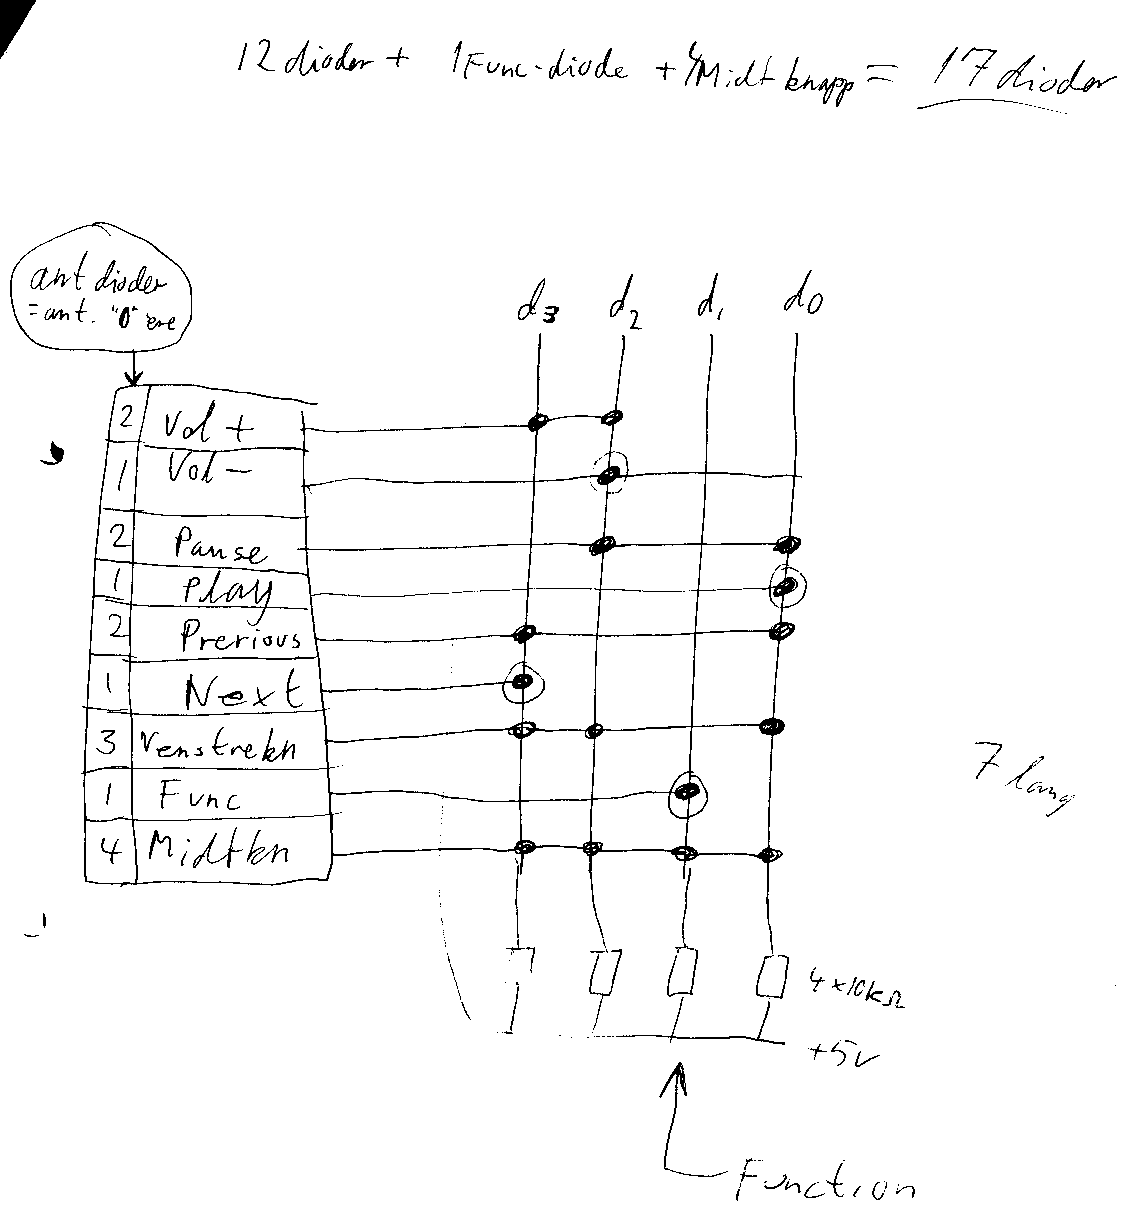 12 dioder + 1 Func-diode + 4 Midtknapp = 17 dioder
ant dioder
= ant. "0" ere
d3 d2 d1 d0
2 Vol +
1 Vol -
2 Pause
1 Play
2 Previous
1 Next
3 Venstrekn
1 Func
4 Midtkn
7 lang
4 x 10kΩ
+5V
Function